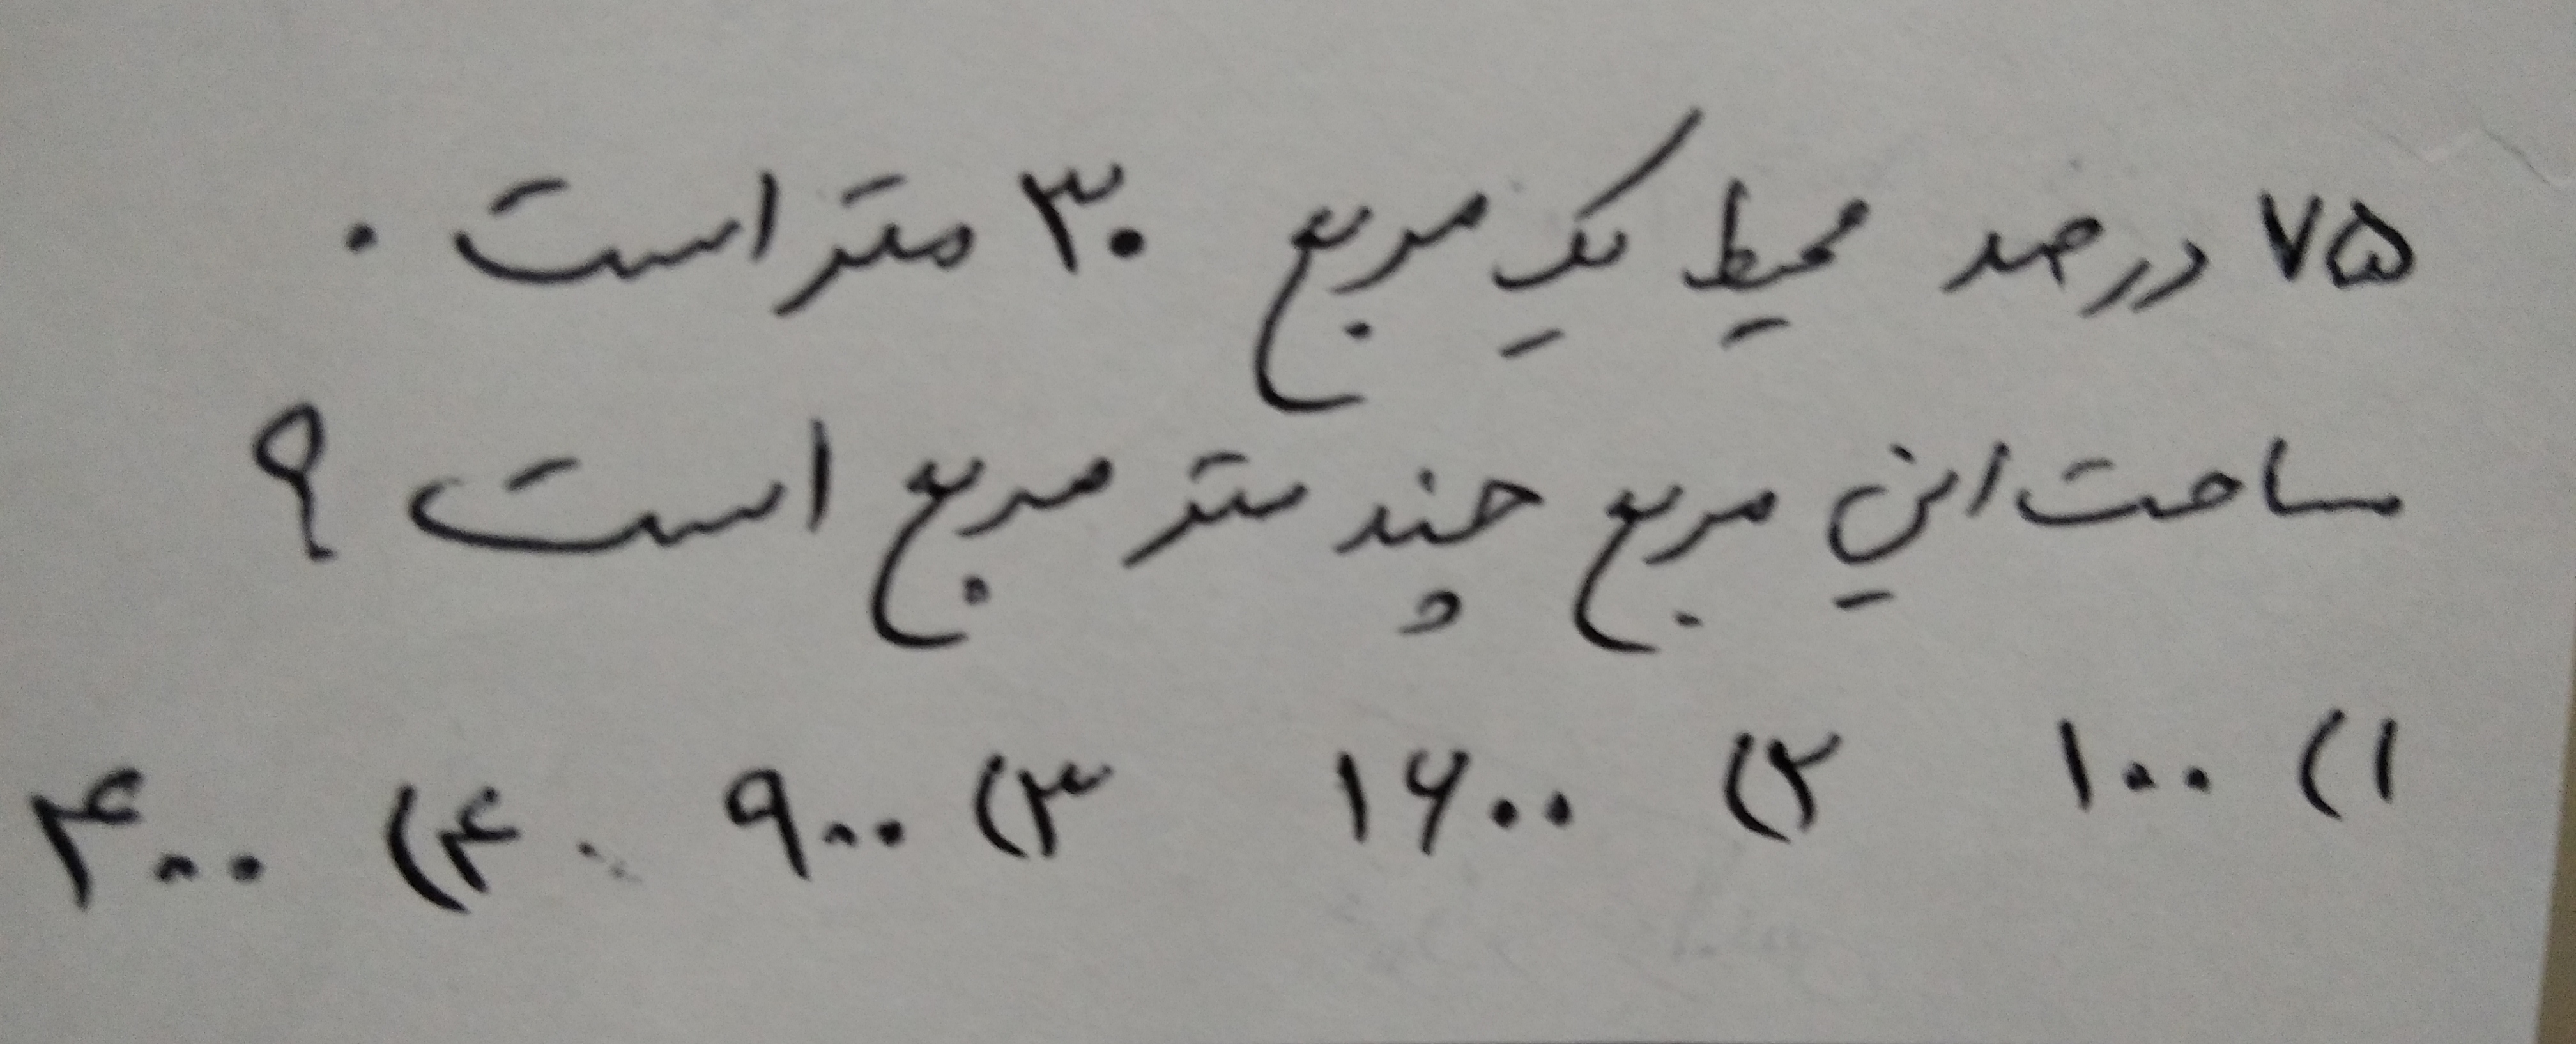 ۷۵ درصد محیط یک مربع ۳۰ متر است.
مساحت این مربع چند متر مربع است؟
۱) ۱۰۰ ۲) ۱۶۰۰ ۳) ۹۰۰ ۴) ۴۰۰